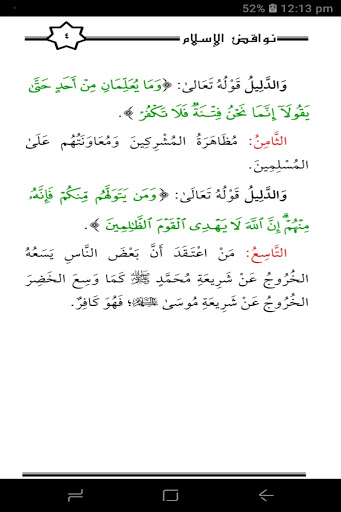 52% 12:13 pm
نواقض الإسلام
٤
وَالدَّلِيلُ قَوْلُهُ تَعَالَىٰ: ﴿وَمَا يُعَلِّمَانِ مِنْ أَحَدٍ حَتَّىٰ
يَقُولَآ إِنَّمَا نَحْنُ فِتْنَةٌ فَلَا تَكْفُرْ﴾.
الثَّامِنُ: مُظَاهَرَةُ المُشْرِكِينَ وَمُعَاوَنَتُهُمْ عَلَىٰ
المُسْلِمِينَ.
وَالدَّلِيلُ قَوْلُهُ تَعَالَىٰ: ﴿وَمَن يَتَوَلَّهُم مِّنكُمْ فَإِنَّهُۥ
مِنْهُمْ ۗ إِنَّ ٱللَّهَ لَا يَهْدِى ٱلْقَوْمَ ٱلظَّـٰلِمِينَ﴾.
التَّاسِعُ: مَنْ اعْتَقَدَ أَنَّ بَعْضَ النَّاسِ يَسَعُهُ
الخُرُوجُ عَنْ شَرِيعَةِ مُحَمَّدٍ ﷺ كَمَا وَسِعَ الخَضِرَ
الخُرُوجُ عَنْ شَرِيعَةِ مُوسَىٰ ؛ فَهُوَ كَافِرٌ.